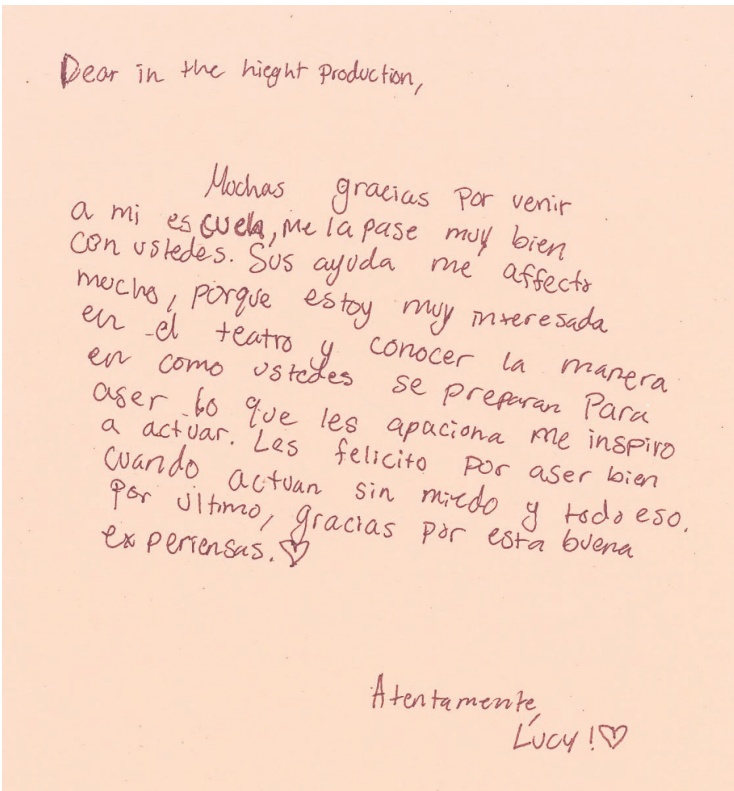 Dear in the hieght Production,
Muchas gracias por venir
a mi escuela, me la pase muy bien
con ustedes. Sus ayuda me affecto
mucho, porque estoy muy interesada
en el teatro y conocer la manera
en como ustedes se preparan Para
aser lo que les apaciona me inspiro
a actuar. Les felicito por aser bien
cuando actuan sin miedo y todo eso.
Por último, gracias por esta buena
experiensas.♡
Atentamente,
Lucy!♡